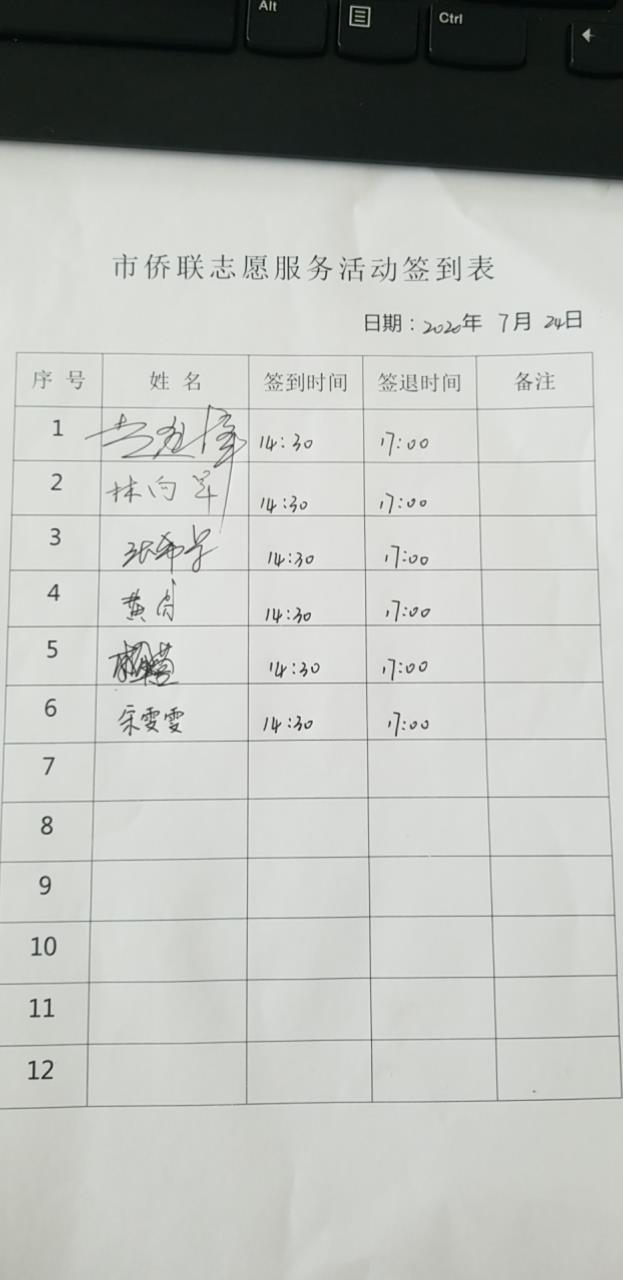 Alt
Ctrl
市侨联志愿服务活动签到表
日期：2020年 7月 24日
序号 姓名 签到时间 签退时间 备注
1 14:30 17:00
2 林向 14:30 17:00
3 张希 14:30 17:00
4 黄 14:30 17:00
5 14:30 17:00
6 宋雯雯 14:30 17:00
7
8
9
10
11
12